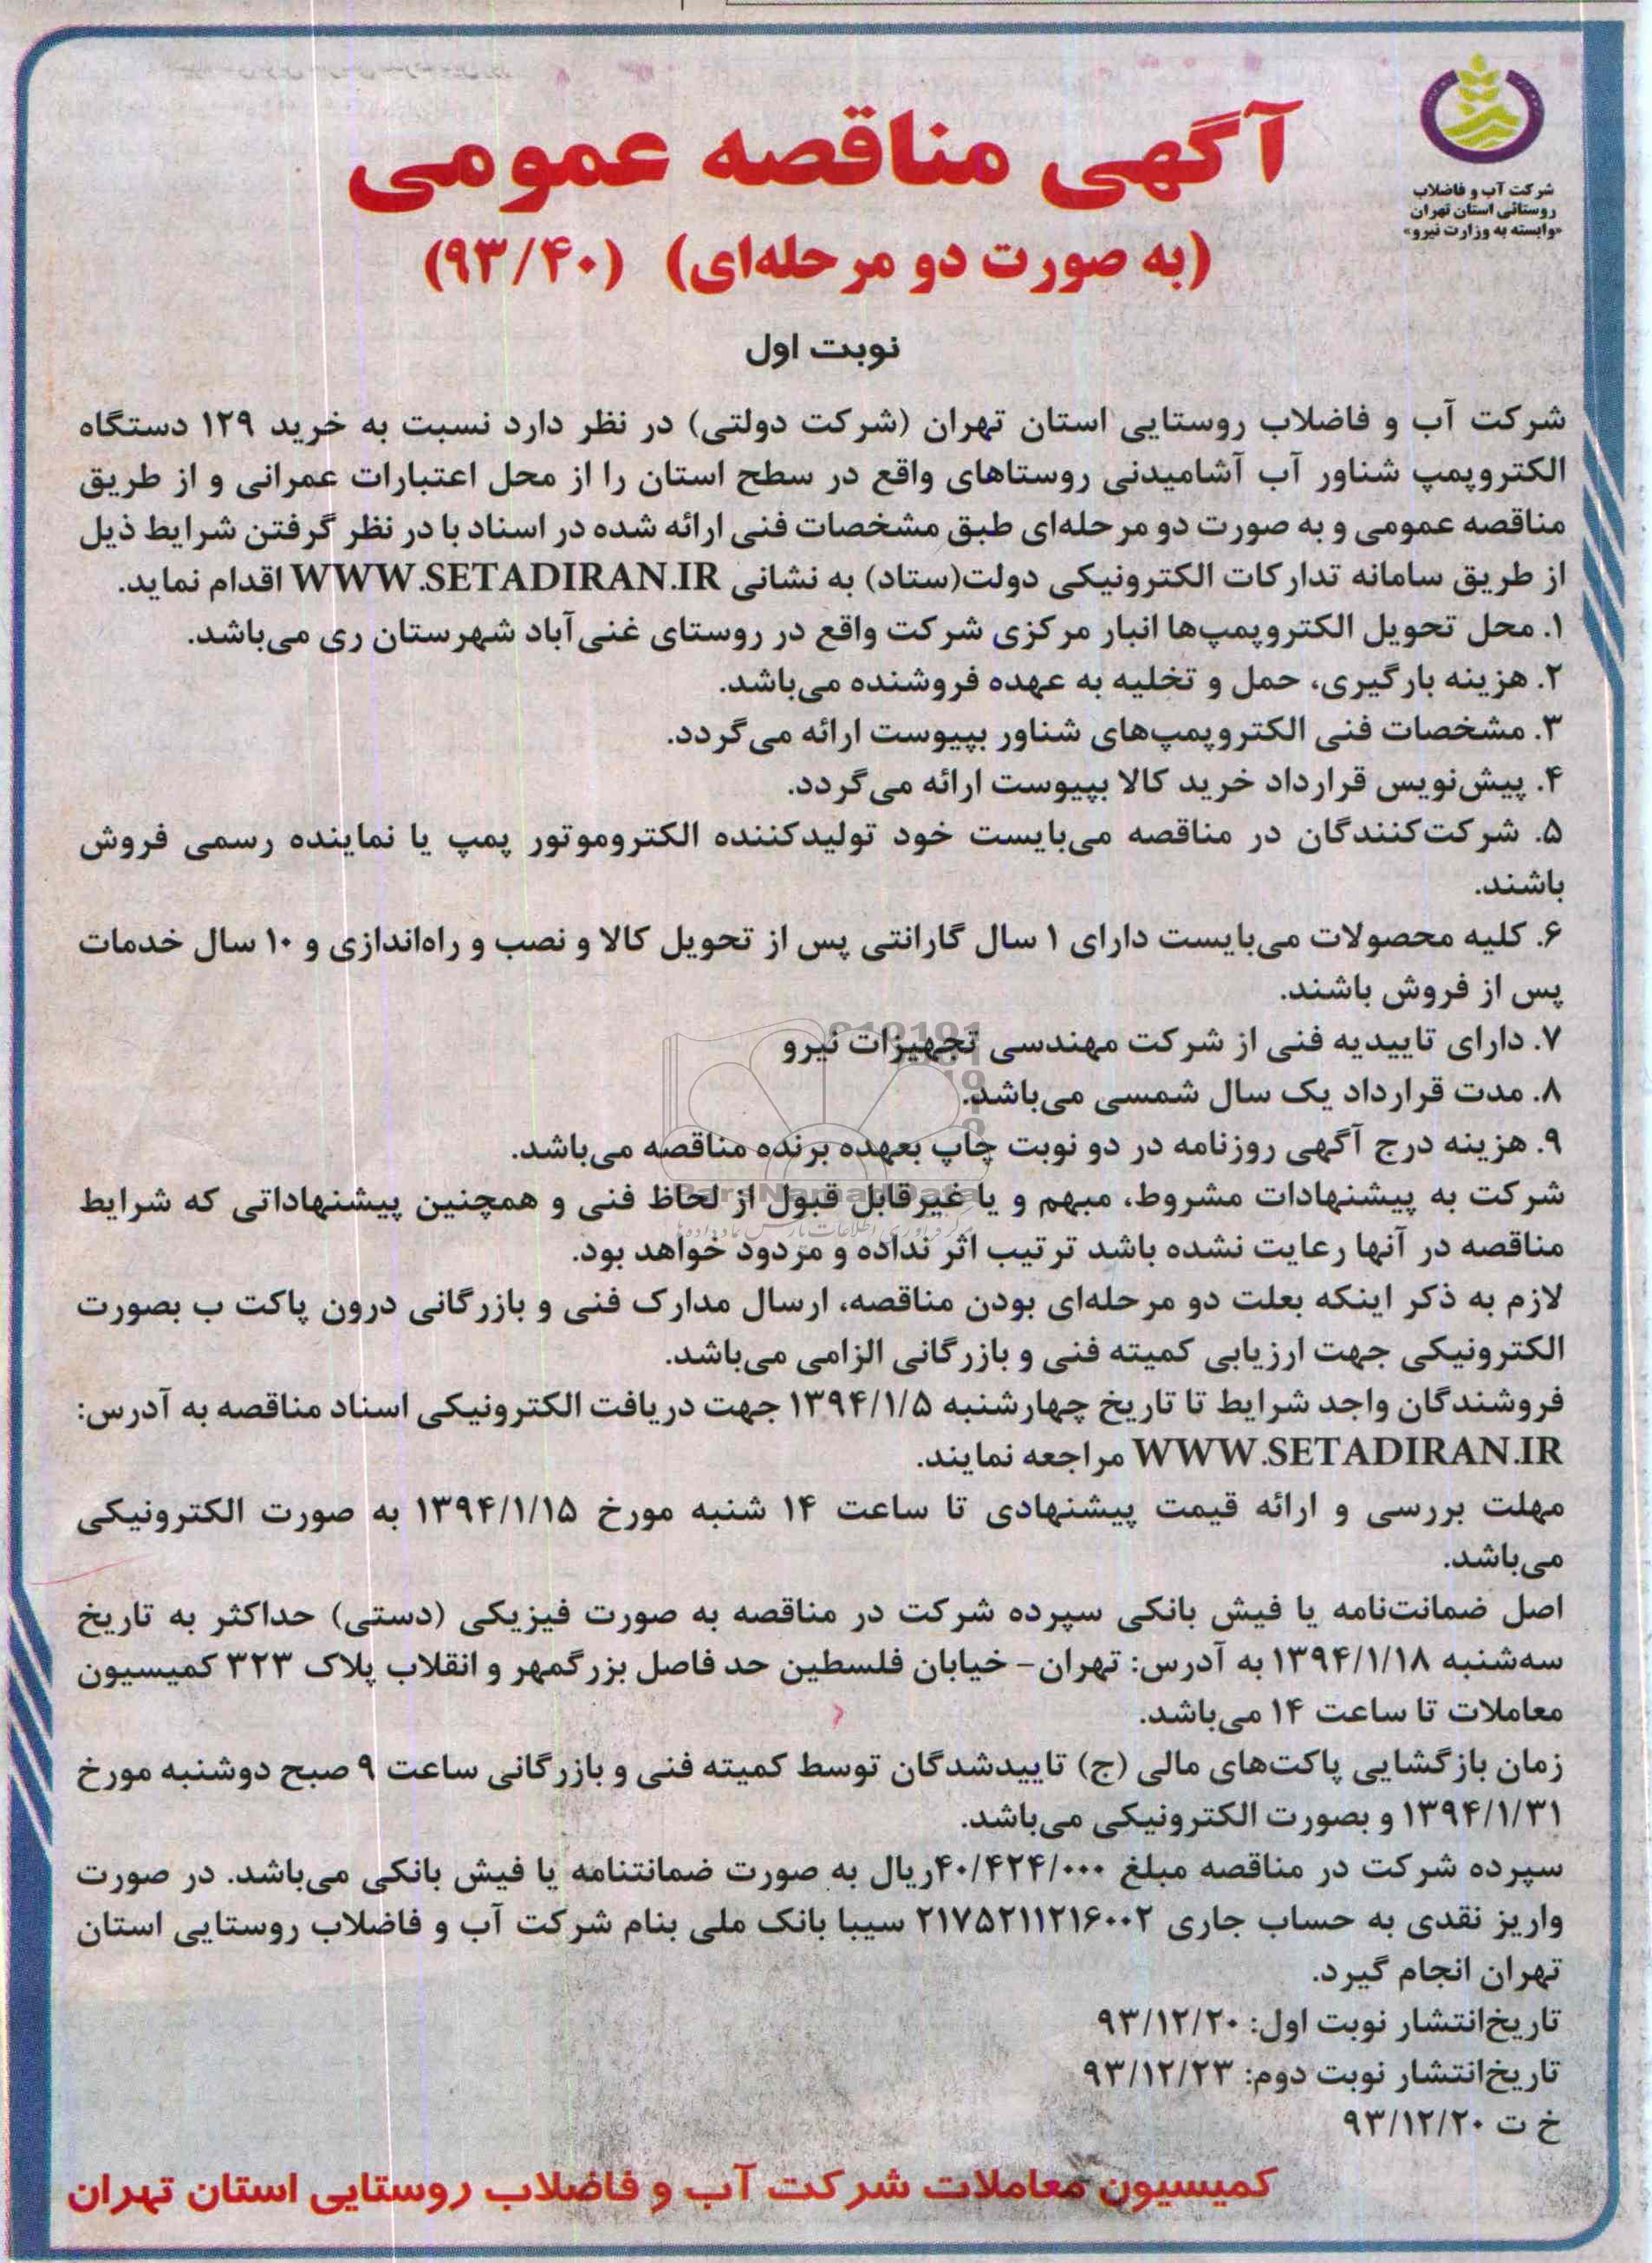 شرکت آب و فاضلاب
روستائی استان تهران
«وابسته به وزارت نیرو»
آگهی مناقصه عمومی
(به صورت دو مرحله‌ای) (۹۳/۴۰)
نوبت اول
شرکت آب و فاضلاب روستایی استان تهران (شرکت دولتی) در نظر دارد نسبت به خرید ۱۲۹ دستگاه
الکتروپمپ شناور آب آشامیدنی روستاهای واقع در سطح استان را از محل اعتبارات عمرانی و از طریق
مناقصه عمومی و به صورت دو مرحله‌ای طبق مشخصات فنی ارائه شده در اسناد با در نظر گرفتن شرایط ذیل
از طریق سامانه تدارکات الکترونیکی دولت(ستاد) به نشانی WWW.SETADIRAN.IR اقدام نماید.
۱. محل تحویل الکتروپمپ‌ها انبار مرکزی شرکت واقع در روستای غنی‌آباد شهرستان ری می‌باشد.
۲. هزینه بارگیری، حمل و تخلیه به عهده فروشنده می‌باشد.
۳. مشخصات فنی الکتروپمپ‌های شناور بپیوست ارائه می‌گردد.
۴. پیش‌نویس قرارداد خرید کالا بپیوست ارائه می‌گردد.
۵. شرکت‌کنندگان در مناقصه می‌بایست خود تولیدکننده الکتروموتور پمپ یا نماینده رسمی فروش
باشند.
۶. کلیه محصولات می‌بایست دارای ۱ سال گارانتی پس از تحویل کالا و نصب و راه‌اندازی و ۱۰ سال خدمات
پس از فروش باشند.
۷. دارای تاییدیه فنی از شرکت مهندسی تجهیزات نیرو
۸. مدت قرارداد یک سال شمسی می‌باشد.
۹. هزینه درج آگهی روزنامه در دو نوبت چاپ بعهده برنده مناقصه می‌باشد.
شرکت به پیشنهادات مشروط، مبهم و یا غیرقابل قبول از لحاظ فنی و همچنین پیشنهاداتی که شرایط
مناقصه در آنها رعایت نشده باشد ترتیب اثر نداده و مردود خواهد بود.
لازم به ذکر اینکه بعلت دو مرحله‌ای بودن مناقصه، ارسال مدارک فنی و بازرگانی درون پاکت ب بصورت
الکترونیکی جهت ارزیابی کمیته فنی و بازرگانی الزامی می‌باشد.
فروشندگان واجد شرایط تا تاریخ چهارشنبه ۱۳۹۴/۱/۵ جهت دریافت الکترونیکی اسناد مناقصه به آدرس:
WWW.SETADIRAN.IR مراجعه نمایند.
مهلت بررسی و ارائه قیمت پیشنهادی تا ساعت ۱۴ شنبه مورخ ۱۳۹۴/۱/۱۵ به صورت الکترونیکی
می‌باشد.
اصل ضمانت‌نامه یا فیش بانکی سپرده شرکت در مناقصه به صورت فیزیکی (دستی) حداکثر به تاریخ
سه‌شنبه ۱۳۹۴/۱/۱۸ به آدرس: تهران- خیابان فلسطین حد فاصل بزرگمهر و انقلاب پلاک ۳۲۳ کمیسیون
معاملات تا ساعت ۱۴ می‌باشد.
زمان بازگشایی پاکت‌های مالی (ج) تاییدشدگان توسط کمیته فنی و بازرگانی ساعت ۹ صبح دوشنبه مورخ
۱۳۹۴/۱/۳۱ و بصورت الکترونیکی می‌باشد.
سپرده شرکت در مناقصه مبلغ ۴۰/۴۲۴/۰۰۰ریال به صورت ضمانتنامه یا فیش بانکی می‌باشد. در صورت
واریز نقدی به حساب جاری ۲۱۷۵۲۱۱۲۱۶۰۰۲ سیبا بانک ملی بنام شرکت آب و فاضلاب روستایی استان
تهران انجام گیرد.
تاریخ‌انتشار نوبت اول: ۹۳/۱۲/۲۰
تاریخ‌انتشار نوبت دوم: ۹۳/۱۲/۲۳
خ ت ۹۳/۱۲/۲۰
کمیسیون معاملات شرکت آب و فاضلاب روستایی استان تهران